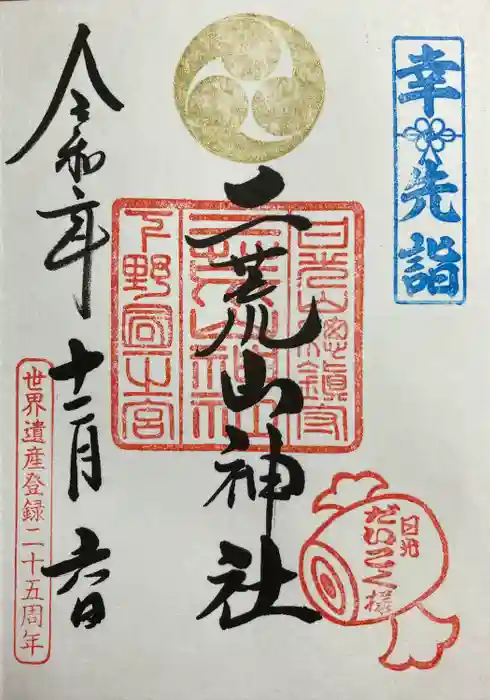 幸先詣
二荒山神社
日光山總鎮守
二荒山神社
下野國一之宮
日光
だいこく様
令和六年十二月六日
世界遺産登録二十五周年